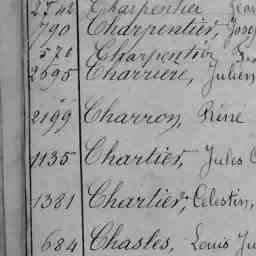 2742 Charpentier
790 Charpentier,
570 Charpentier
2695 Charriere, Julien
2199 Charron, Réné
1135 Chartier, Jules
1381 Chartier, Celestin,
684 Chasles, Louis